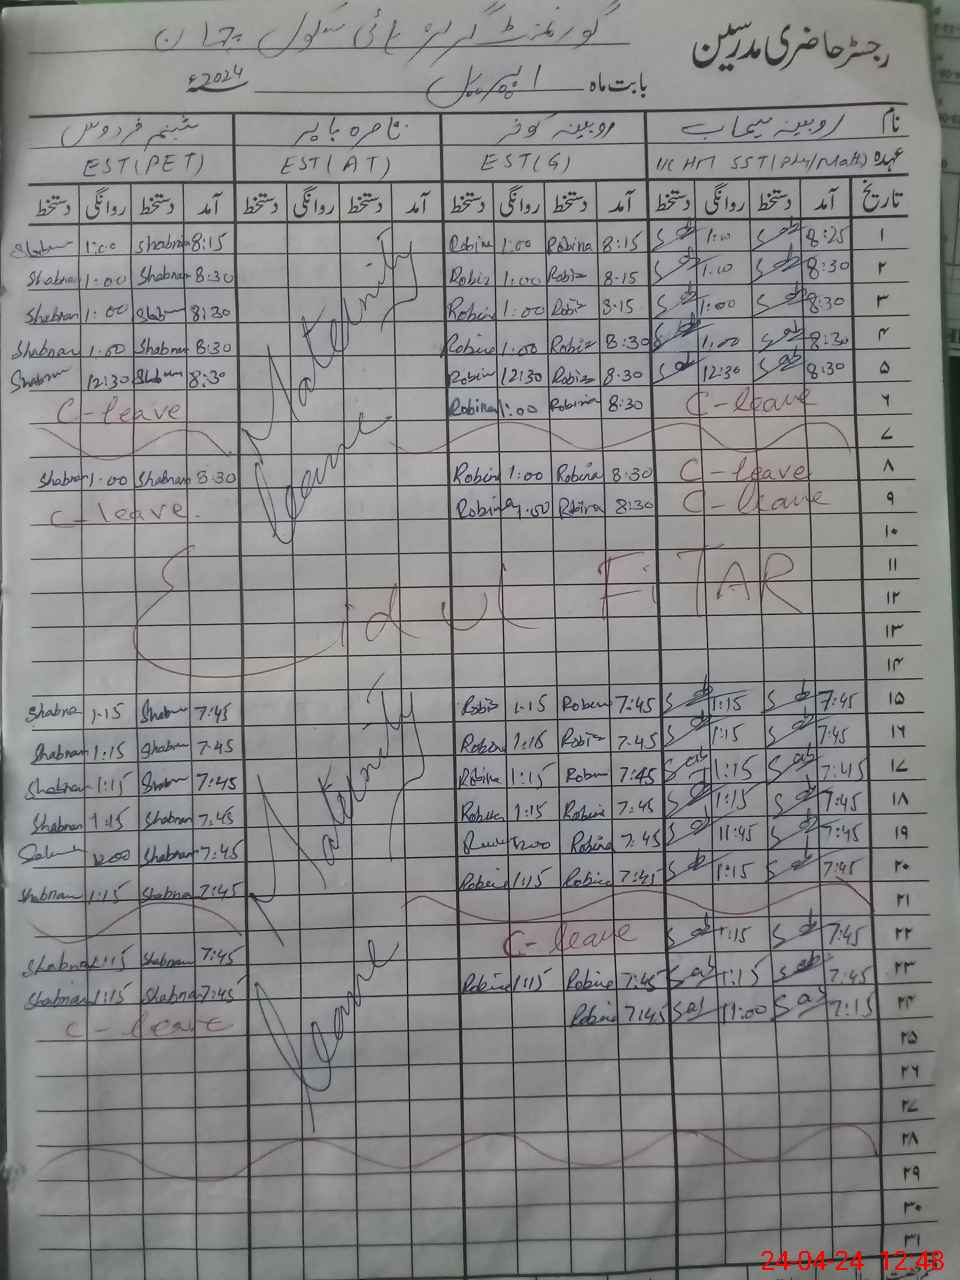 رجسٹر حاضری مدرسین
گورنمنٹ گرلز ہائی سکول
بابت ماہ اپریل 2024ء
نام روبینہ سیماب روبینہ کوثر شبنم فردوس
عہدہ I/C HM SST(Phy/Math) EST(G) EST(AT) EST(PET)
تاریخ آمد دستخط روانگی دستخط آمد دستخط روانگی دستخط آمد دستخط روانگی دستخط آمد دستخط روانگی دستخط
۱ 8:25 1:00 8:15 Robina 1:00 Robina 8:15 Shabnam 1:00
۲ 8:30 1:00 8:15 1:00 8:30 Shabnam 1:00 Shabnam
۳ 8:30 1:00 8:15 1:00 8:30 1:00 Shabnam
۴ 8:30 1:00 8:30 1:00 8:30 Shabnam 1:00 Shabnam
۵ 8:30 12:30 8:30 12:30 8:30 12:30
۶ C-leave 8:30 Robina 1:00 Robina C-leave
۷
۸ C-leave 8:30 Robina 1:00 Robina 8:30 Shabnam 1:00 Shabnam
۹ C-leave 8:30 Robina 1:00 Robina C-leave.
Maternity leave
۱۰
۱۱
۱۲
Eid ul FiTAR
۱۳
۱۴
۱۵ 7:45 1:15 7:45 1:15 7:45 1:15
۱۶ 7:45 1:15 7:45 1:15 7:45 1:15 Shabnam
۱۷ 7:45 1:15 7:45 1:15 7:45 1:15 Shabnam
۱۸ 7:45 1:15 7:45 1:15 7:45 Shabnam 1:15 Shabnam
۱۹ 7:45 11:45 7:45 Robina 12:00 7:45 Shabnam 12:00
۲۰ 7:45 1:15 7:45 1:15 7:45 Shabnam 1:15 Shabnam
۲۱
۲۲ 7:45 1:15 C-leave 7:45 Shabnam 1:15 Shabnam
۲۳ 7:45 1:15 7:45 Robina 1:15 Robina 7:45 Shabnam 1:15 Shabnam
۲۴ 7:15 11:00 7:45 Robina C-leave
Maternity leave
۲۵
۲۶
۲۷
۲۸
۲۹
۳۰
۳۱
24-04-24 12:48